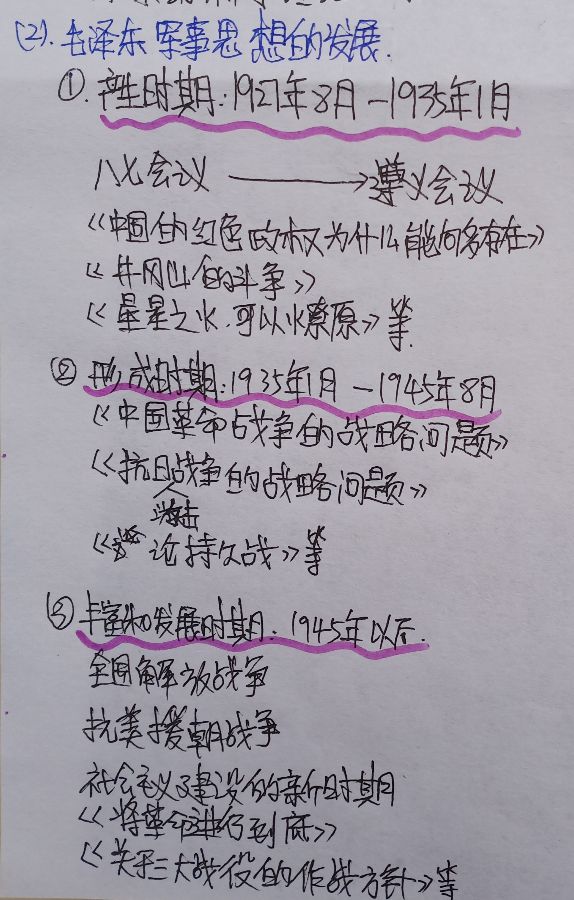 (2). 毛泽东军事思想的发展.
①. 产生时期: 1927年8月-1935年1月
八七会议 → 遵义会议
《中国的红色政权为什么能够存在》
《井冈山的斗争》
《星星之火,可以燎原》等.
② 形成时期: 1935年1月-1945年8月
《中国革命战争的战略问题》
《抗日战争的战略问题》
游击
《论持久战》等
③ 丰富和发展时期: 1945年以后.
全国解放战争
抗美援朝战争
社会主义建设的新时期
《将革命进行到底》
《关于三大战役的作战方针》等